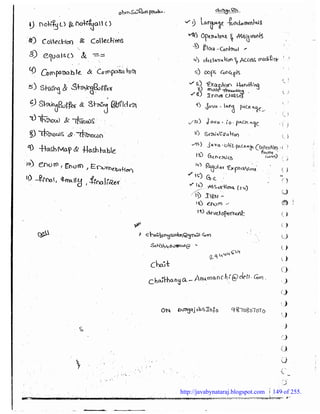 1) notify() & notifyall()
2) Collection & Collections
3) equals() & ==
4) Comparable & Comparator
5) String & StringBuffer
6) StringBuffer & String Builder
7) throw & throws
8) throws & thrown
9) HashMap & Hashtable
10) enum, Enum, Enumeration
11) final, finally, finalizer
Dell
1) Language fundamentals
2) Operators & Assignments
3) Flow - Control
4) declarations & Access modifier
5) OOPS Concepts
6) Exception Handling
7) Multi threading
8) Inner classes
9) Java - lang package
10) Java - io - package
11) Serialization
12) Java - util package (Collection
13) Generics
14) Regular Expressions
15) GC
16) Assertions (1.4)
17) I18N
18) enum
19) development
Chait
Chaithanya - Anumanchi@dell.com
ON
9870807070
http://javabynataraj.blogspot.com 149 of 255.